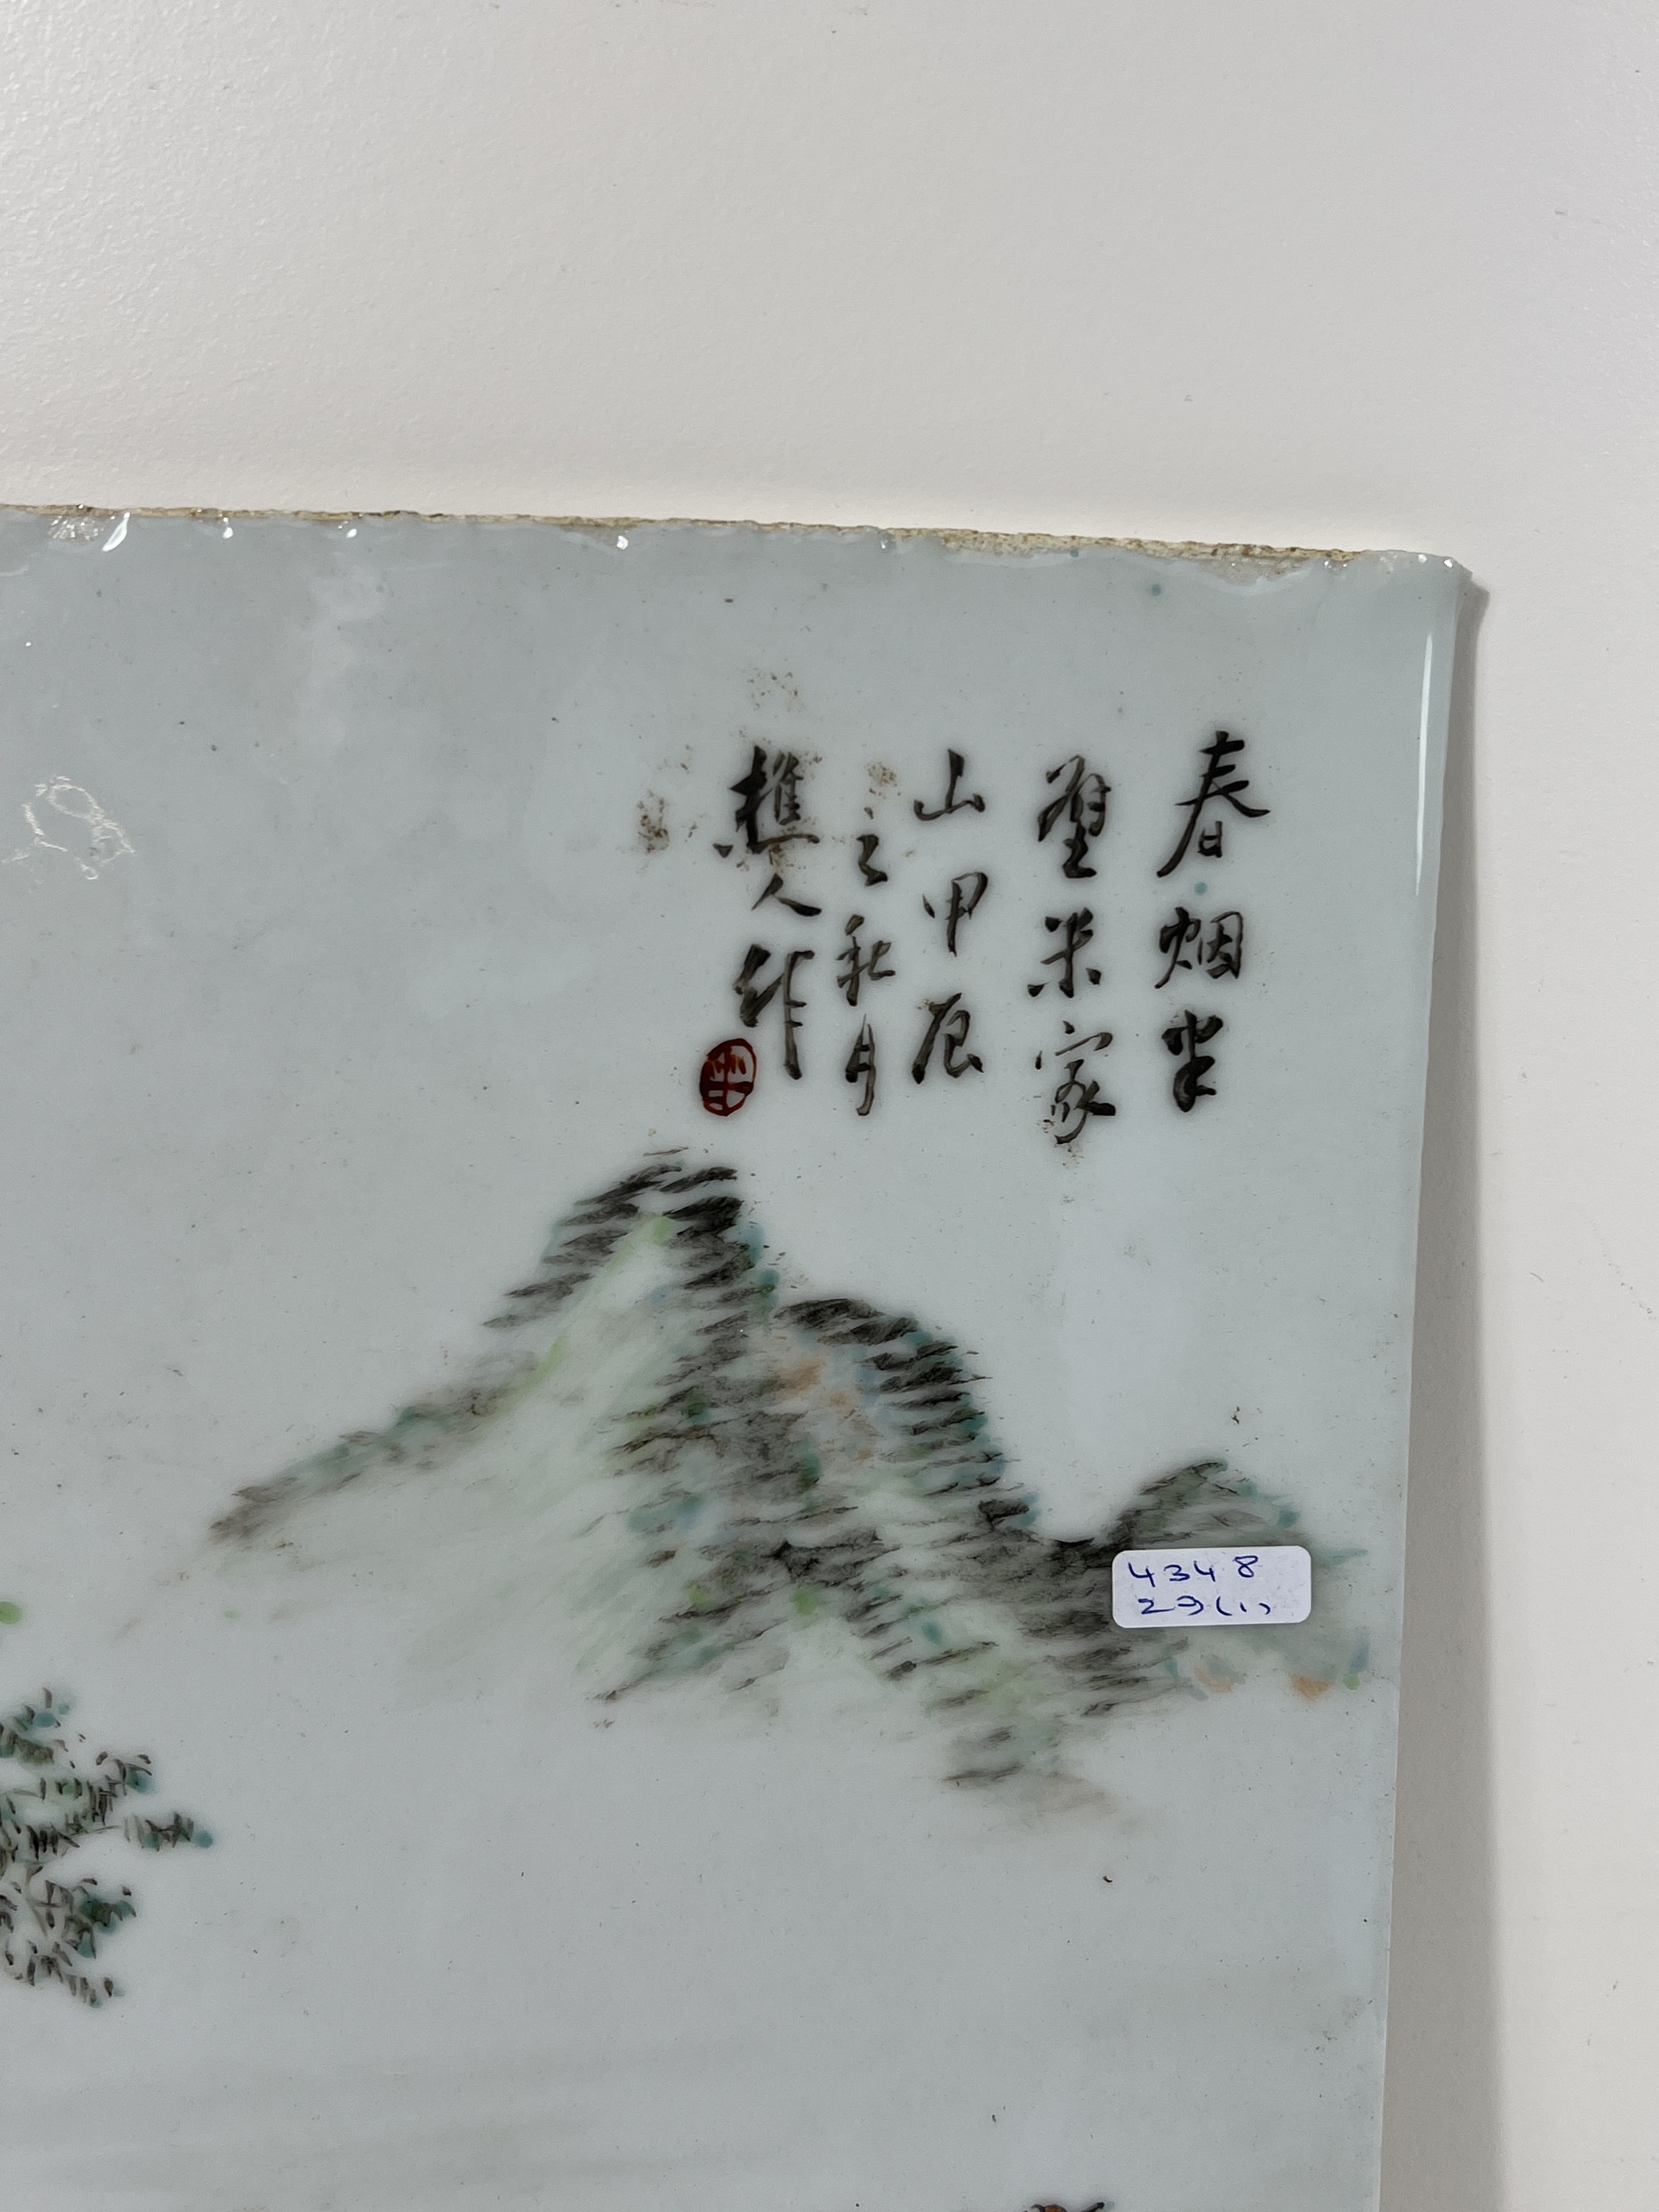 春烟半
壁米家
山甲辰
之秋月
樵人作
4348
29(1)